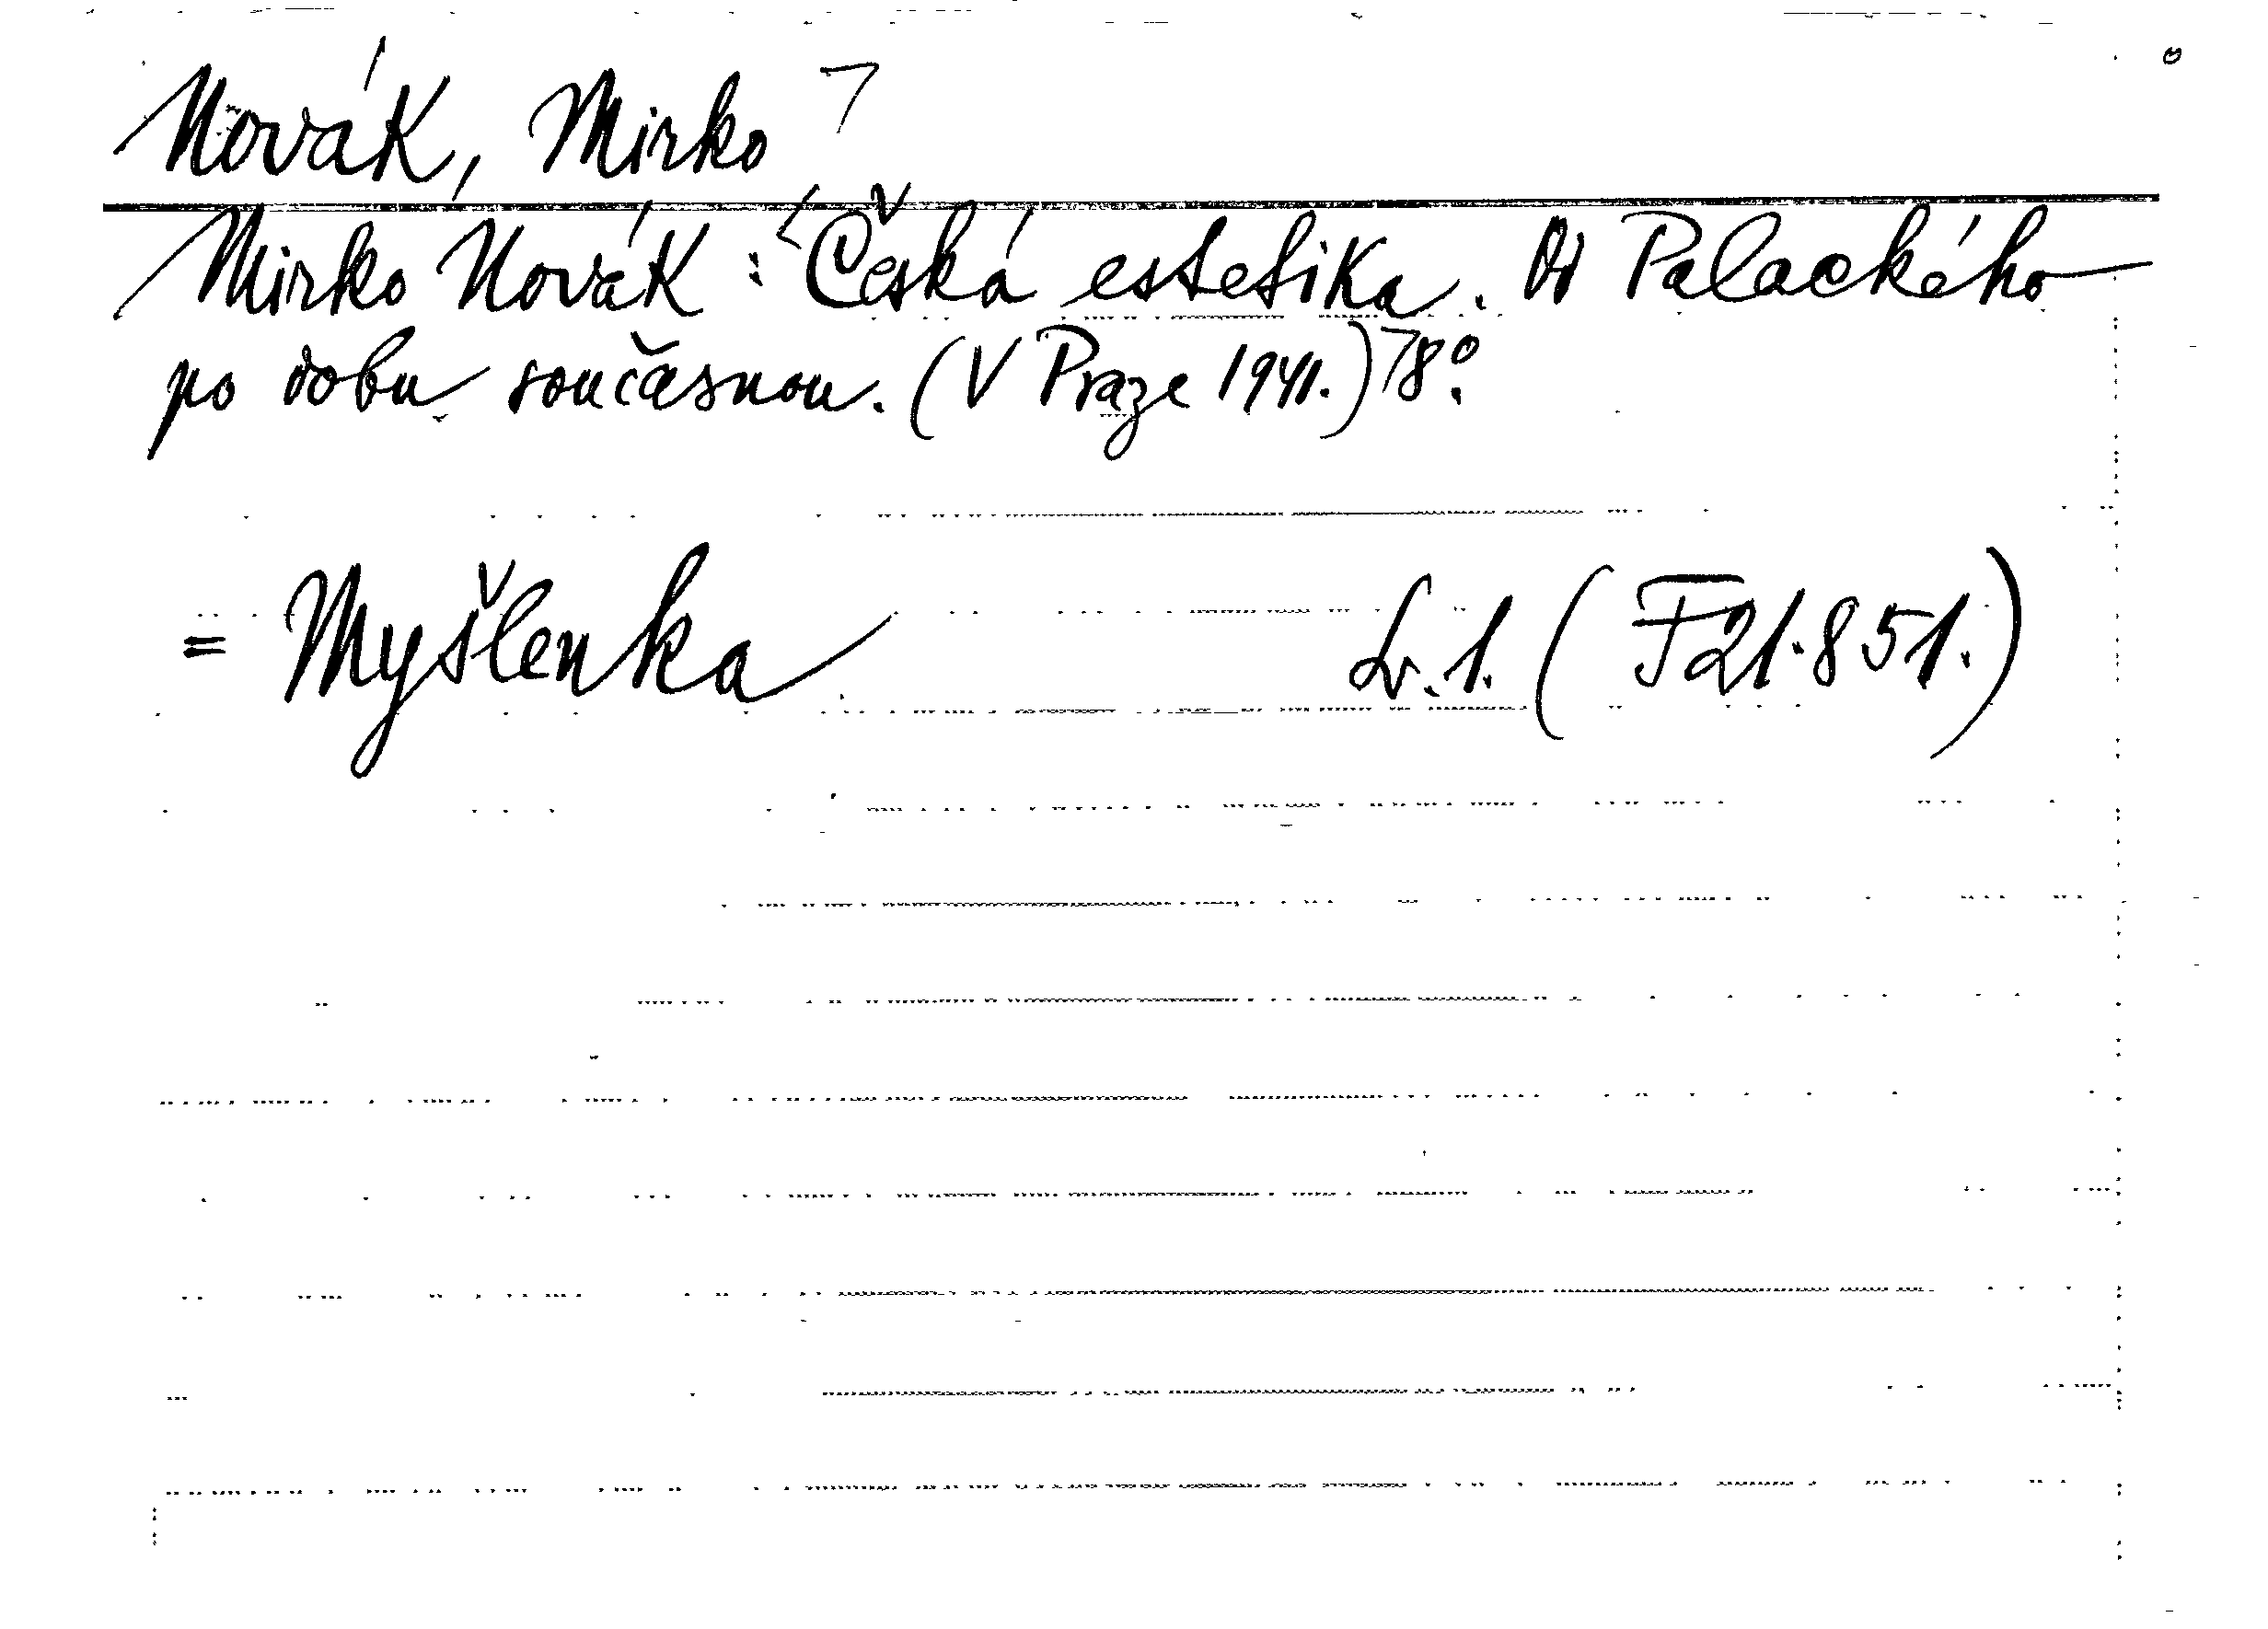 Novák, Mirko
Mirko Novák: Česká estetika. Od Palackého
po dobu současnou. (V Praze 1941.) 8°.
= Myšlenka sv. 1. (F21.851.)